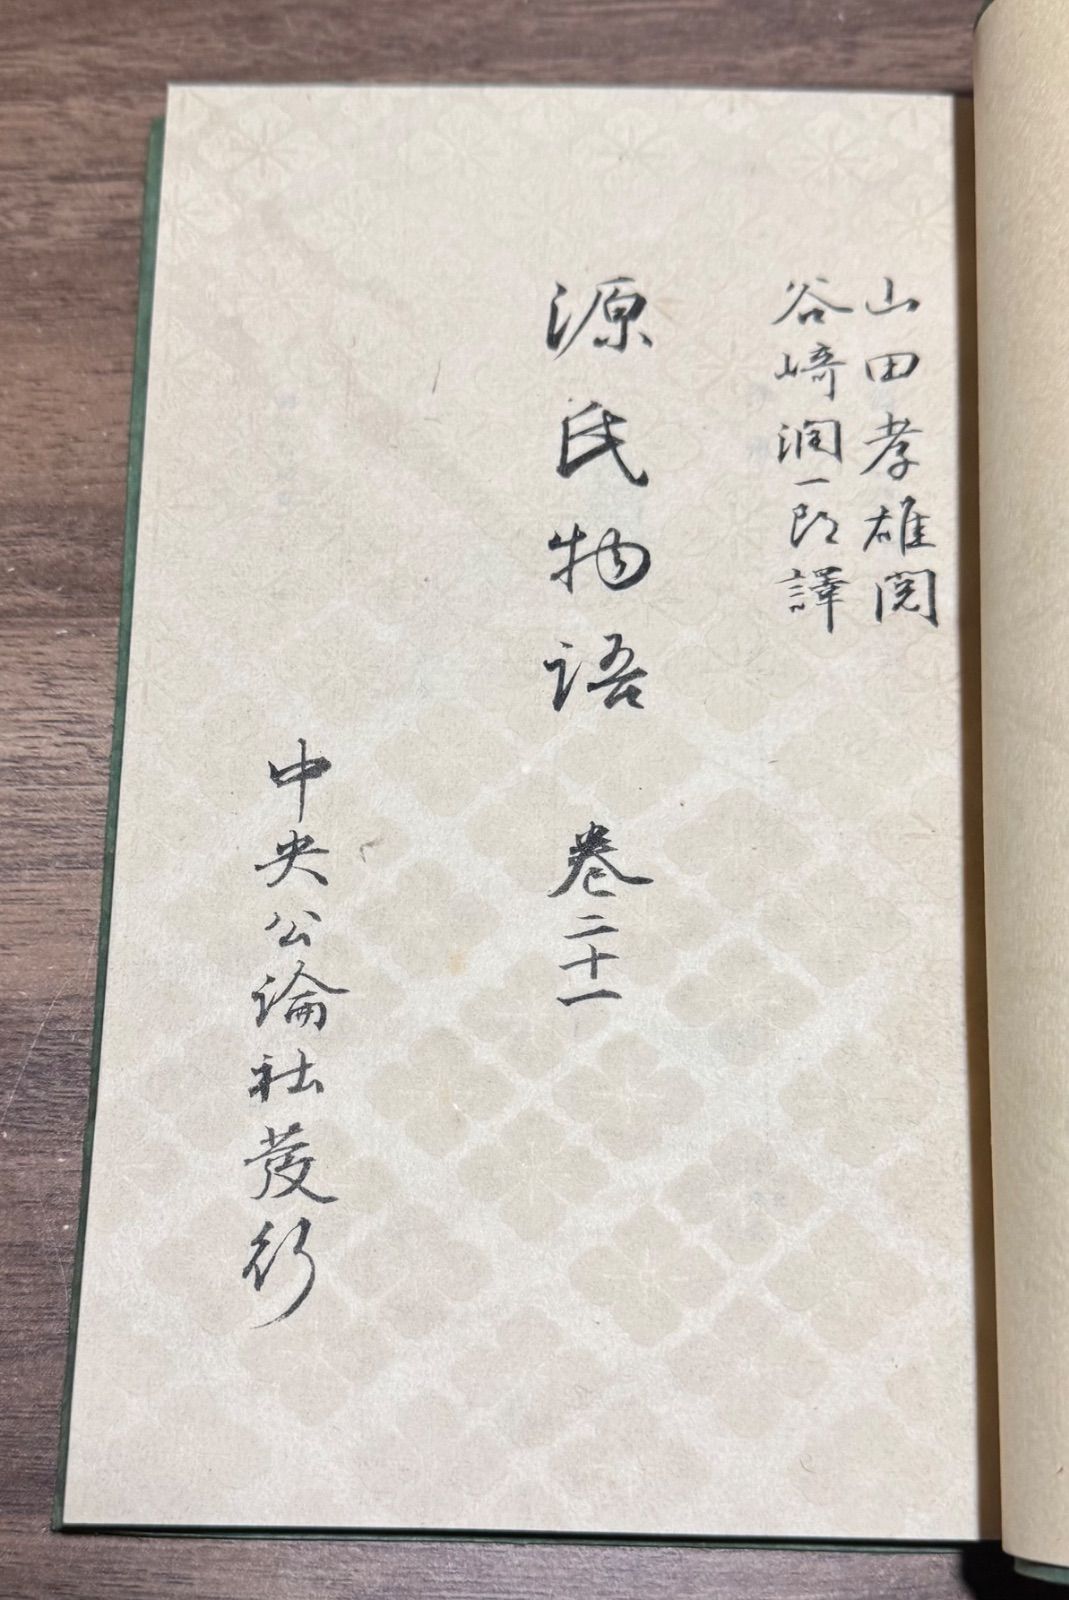 山田孝雄閲
谷崎潤一郎譯
源氏物語 巻二十一
中央公論社發行